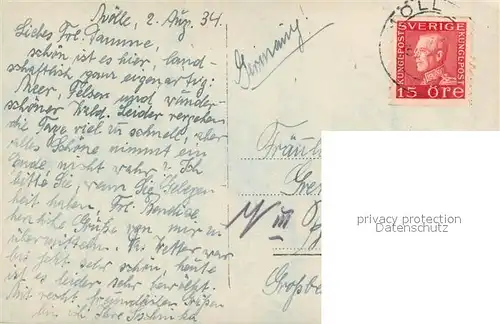 Mölle, 2. Aug. 34.
Liebes Frl. Damme,
schön ist es hier, land-
schaftlich ganz eigenartig:
Meer, Felsen und wunder-
schöner Wald. Leider vergehen
die Tage viel zu schnell, aber
alles Schöne nimmt ein
Ende, nicht wahr? Ich
bitte Sie, wenn Sie Gelegen
heit haben, Frl.
herzliche Grüße von mir zu
übermitteln. Das Wetter war
bis jetzt sehr schön, heute
ist es leider sehr bewölkt.
Mit recht freundlichen Grüßen
bin ich Ihre
Germany!
MÖLL
SVERIGE
KUNGÖPOST
KUNGÖPOST
15 ÖRE
Fräul
Gre
IV III
Großbe
privacy protection
Datenschutz